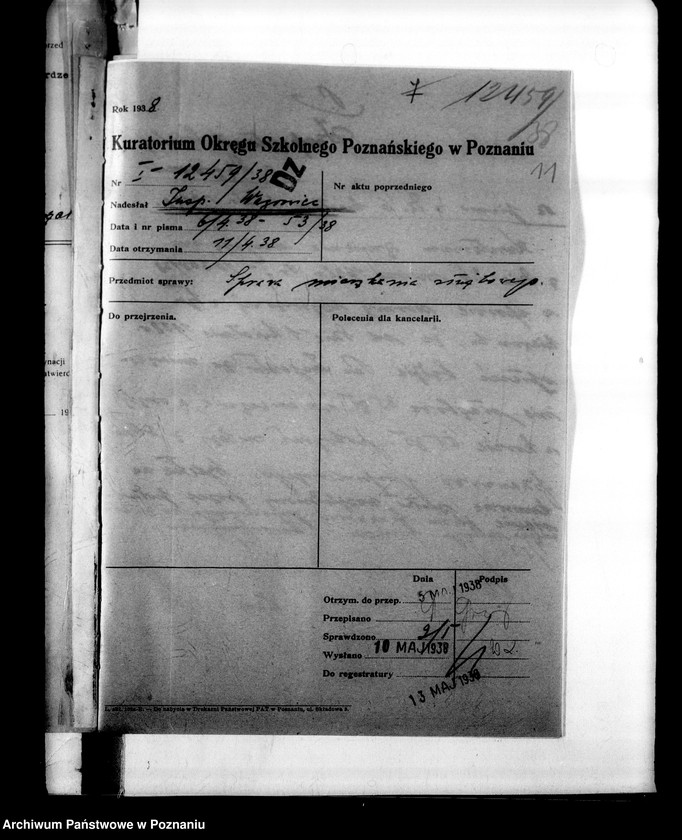 12459/38
11
Rok 1938
Kuratorium Okręgu Szkolnego Poznańskiego w Poznaniu
Nr I-12459/38
DZ
Nr aktu poprzedniego
Nadesłał Insp.
Data i nr pisma 6/4.38 - 53/38
Data otrzymania 11/4.38
Przedmiot sprawy: Sprawa mieszkania służbowego.
Do przejrzenia.
Polecenia dla kancelarii.
Data
Podpis
Otrzym. do przep. 5 MAJ 1938
Przepisano
Sprawdzono 9/5
Wysłano 10 MAJ 1938
Do regestratury
13 MAJ 1938
Do nabycia w Drukarni Państwowej PAT w Poznaniu, ul. Składowa 3.
19
Archiwum Państwowe w Poznaniu